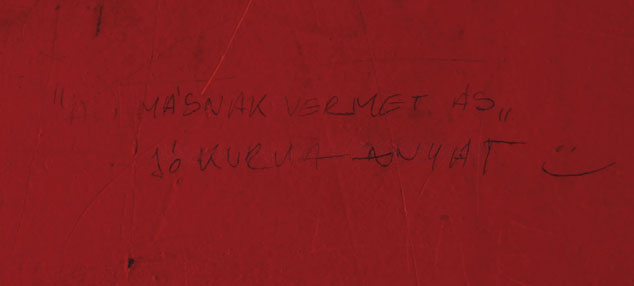 "A MÁSNAK VERMET ÁS„
JÓ KURVA ANYÁT